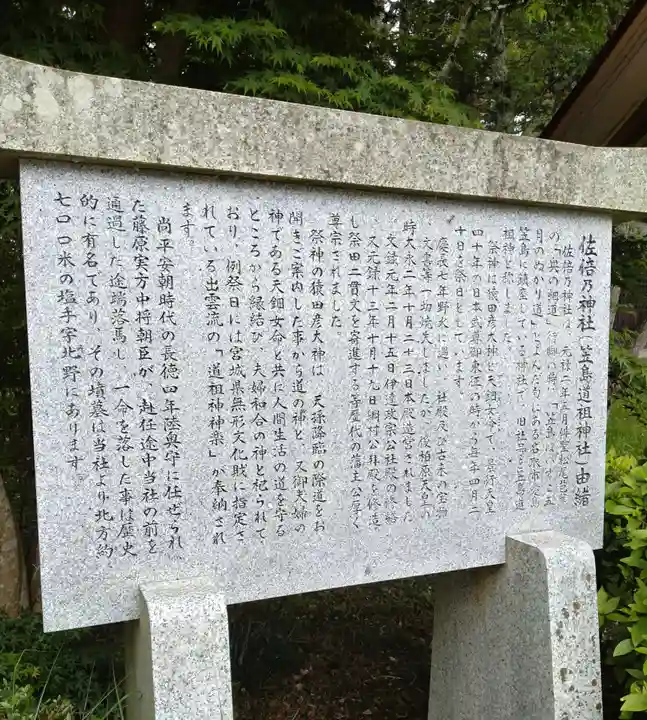 佐倍乃神社(笠島道祖神社)由緒
佐倍乃神社は、元禄二年五月俳聖松尾芭蕉
の「奥の細道」行脚の際、「笠島はいずこ五
月のぬかり道」とよんだ句にある名取市愛島
笠島に鎮座している神社で、旧社号を笠島道
祖神と称しました。
祭神は猿田彦大神と天鈿女命で、景行天皇
四十年の日本武尊御東征の時から毎年四月二
十日を祭日としています。
慶長七年野火に遇い、社殿及び古来の宝物
文書等一切焼失しましたが、後柏原天皇の
時大永二年十月二十三日本殿造営されました
文禄元年二月十五日伊達政宗公社殿の修繕
又元禄十三年十月十九日綱村公拝殿を修造
し祭田二貫文を寄進する等歴代の藩主公厚く
尊崇されました。
祭神の猿田彦大神は、天孫降臨の際道をお
開きご案内した事から道の神と、又御夫婦の
神である天鈿女命と共に人間生活の道を守る
ところから縁結び、夫婦和合の神と祀られて
おり、例祭日には宮城県無形文化財に指定さ
れている出雲流の「道祖神神楽」が奉納され
ます。
尚平安朝時代の長徳四年陸奥守に任ぜられ
た藤原実方中将朝臣が、赴任途中当社の前を
通過した途端落馬し、一命を落した事は歴史
的に有名であり、その墳墓は当社より北方約
七〇〇米の塩手字北野にあります。